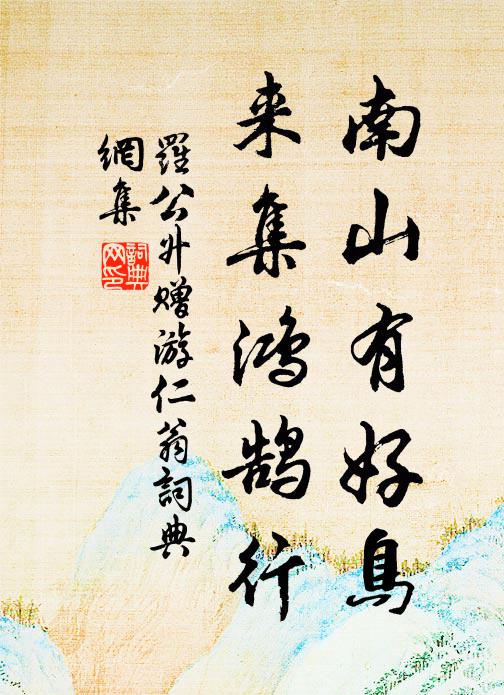 南山有好鳥
来集鴻鹄行
羅公升贈游仁翁詞典
網集
詞典網印